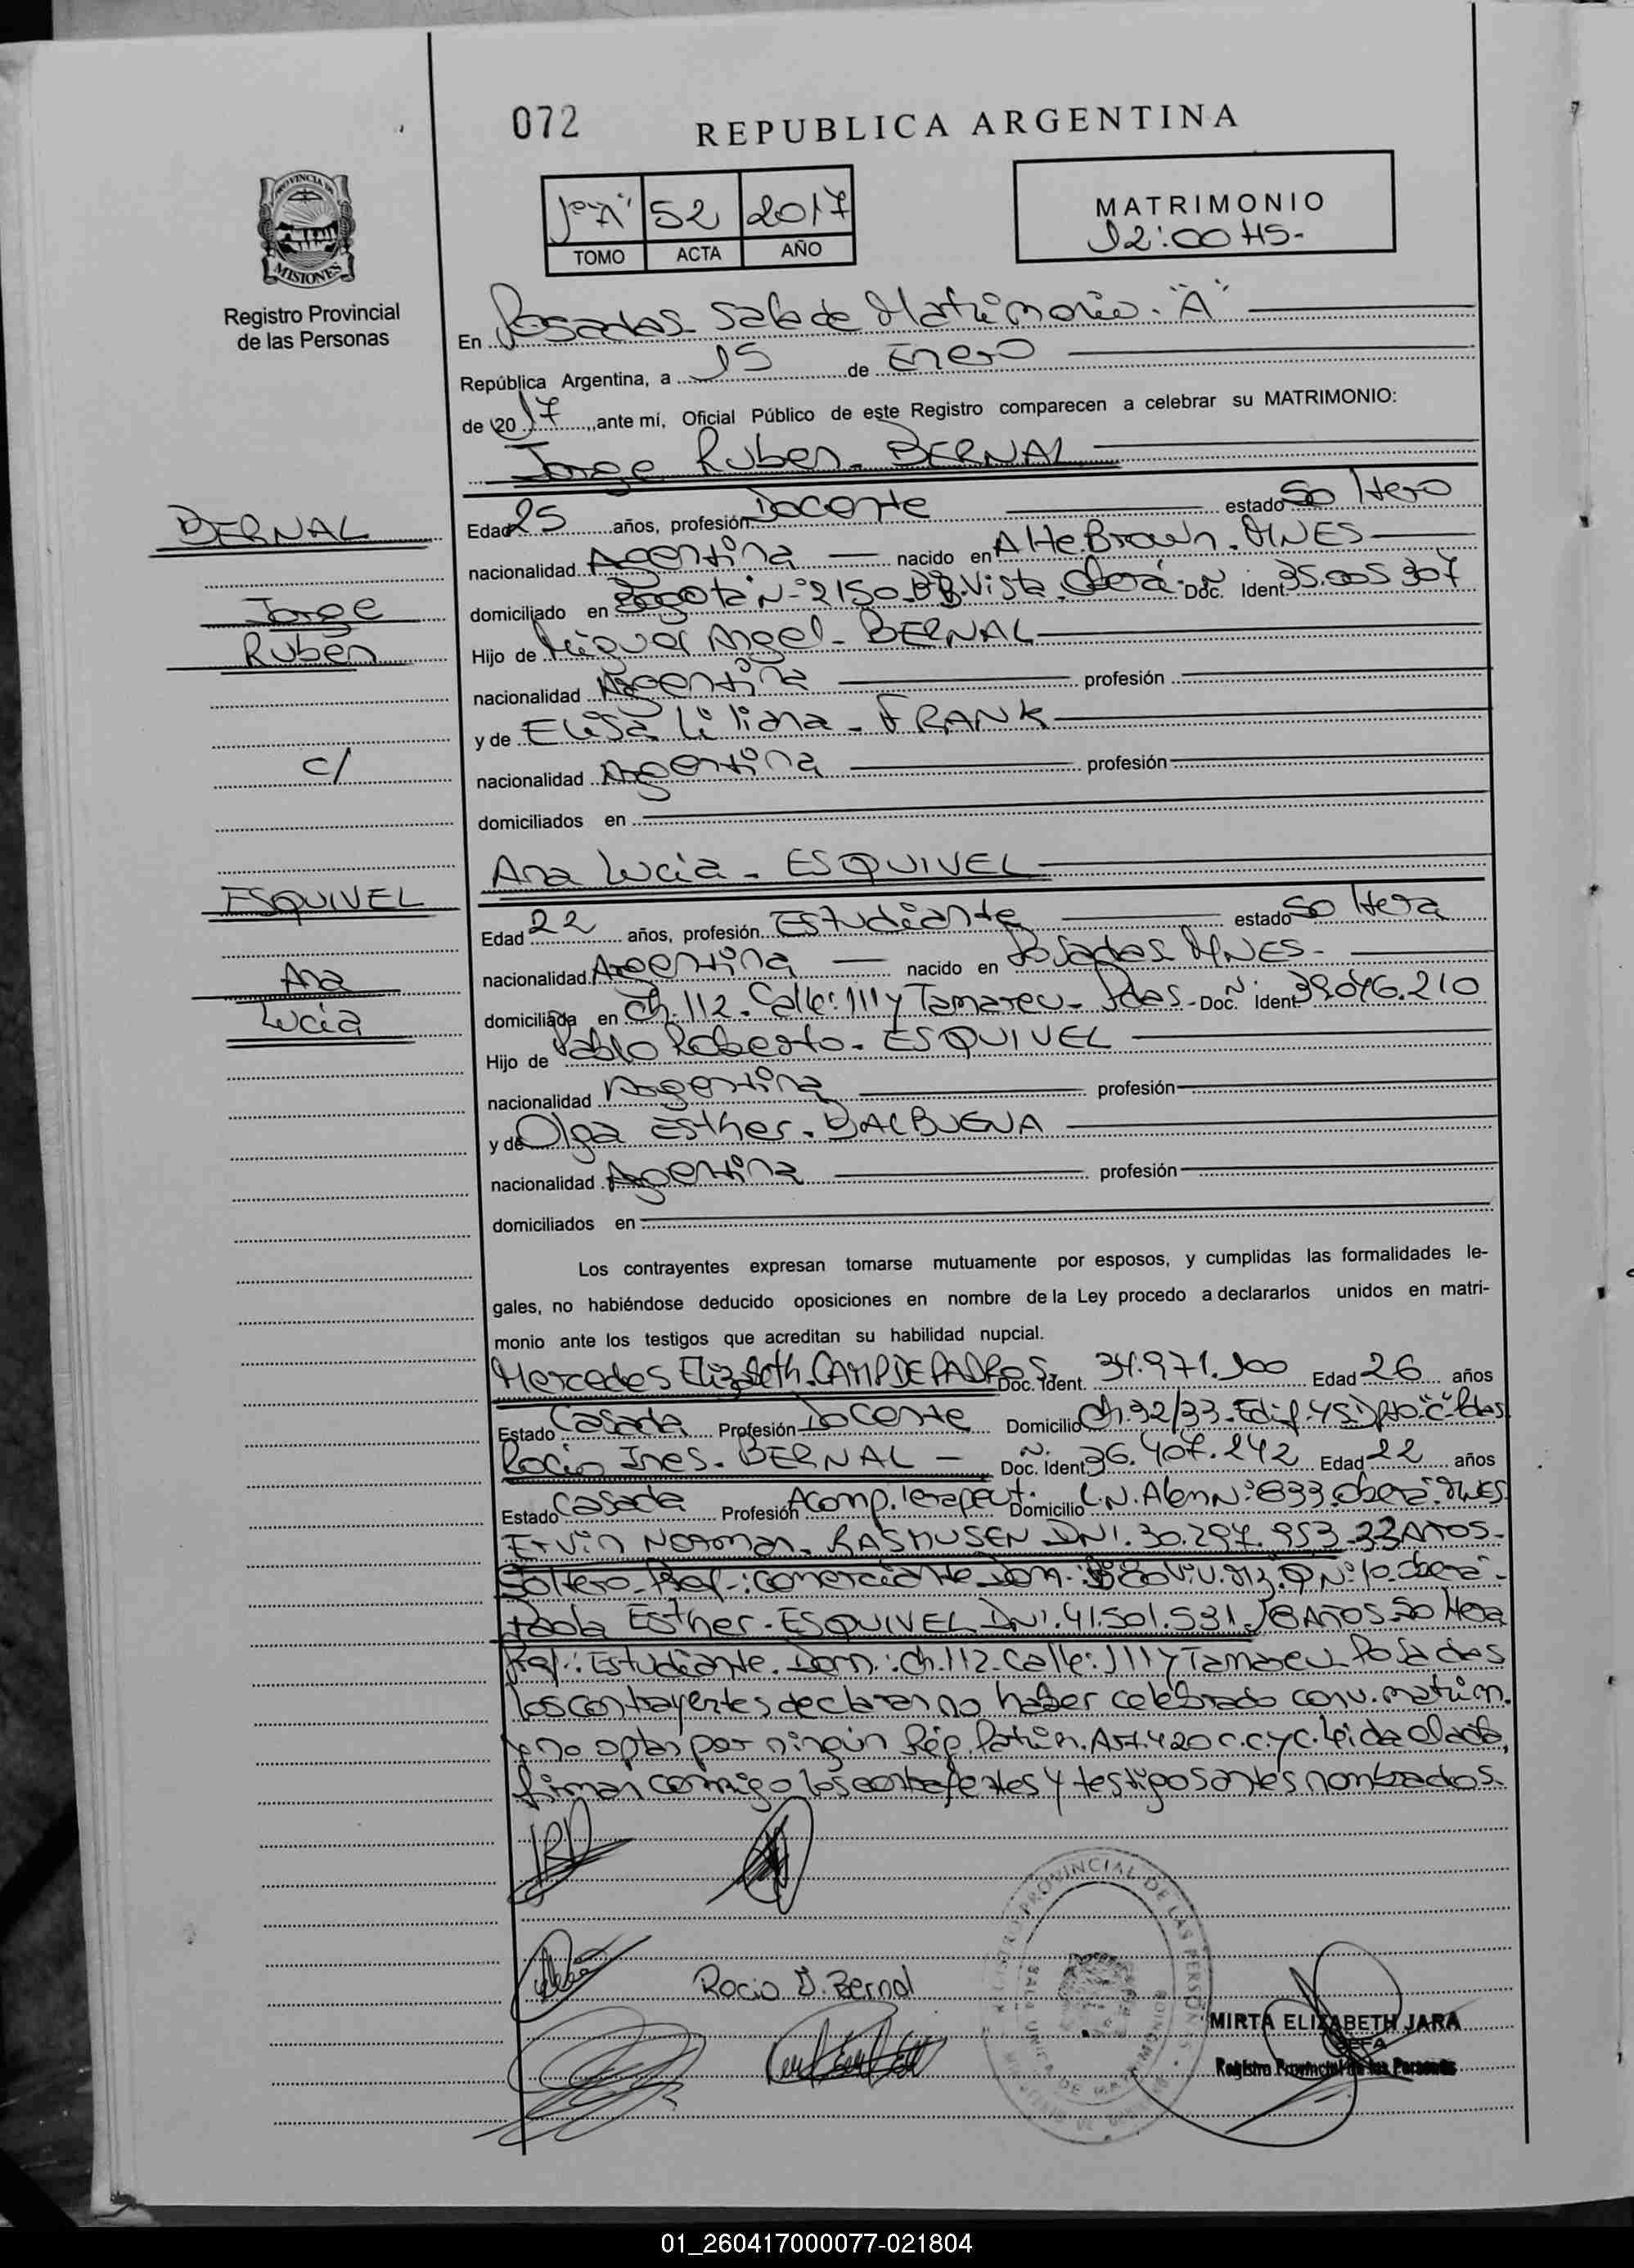 072
REPUBLICA ARGENTINA
1º "A" 52 2017
TOMO ACTA AÑO
MATRIMONIO
12:00 HS-
PROVINCIA DE
MISIONES
Registro Provincial
de las Personas
En Posadas Sala de Matrimonio. "A"
República Argentina, a 15 de Enero
de 2017, ante mí, Oficial Público de este Registro comparecen a celebrar su MATRIMONIO:
Jorge Ruben - BERNAL
BERNAL
Jorge
Ruben
c/
ESQUIVEL
Ana
Lucia
Edad 25 años, profesión Docente estado Soltero
nacionalidad Argentina nacido en Alte Brown. MNES
domiciliado en Bogotá Nº 2150 Bº B. Vista Oberá Doc. Ident 35.005.307
Hijo de Miguel Angel - BERNAL
nacionalidad Argentina profesión
y de Elisa Liliana - FRANK
nacionalidad Argentina profesión
domiciliados en
Ana Lucia - ESQUIVEL
Edad 22 años, profesión Estudiante estado Soltera
nacionalidad Argentina nacido en Posadas MNES-
domiciliada en Ch. 112. Calle: 111 y Tamareu - Pdas - Doc. Ident 39.046.210
Hijo de Pablo Roberto - ESQUIVEL
nacionalidad Argentina profesión
y de Olga Esther. BALBUENA
nacionalidad Argentina profesión
domiciliados en
Los contrayentes expresan tomarse mutuamente por esposos, y cumplidas las formalidades le-
gales, no habiéndose deducido oposiciones en nombre de la Ley procedo a declararlos unidos en matri-
monio ante los testigos que acreditan su habilidad nupcial.
Mercedes Elizabeth. CAMPDEPADROS Doc. Ident. 34.971.100 Edad 26 años
Estado Casada Profesión Docente Domicilio Ch. 32/33. Edif. 45 Dpto "C" Pdas
Rocio Ines. BERNAL - Doc. Ident 36.407.242 Edad 22 años
Estado Casada Profesión Acomp. Terapeut. Domicilio L.N. Alem Nº 833. Oberá. MNES
Ervin Norman. RASMUSEN DNI. 30.297.953 33 AÑOS-
Soltero Prof.: comerciante Dom: Bº 80 Viv. Nº 10. Oberá-
Paola Esther - ESQUIVEL DNI. 41.501.531 18 AÑOS Soltera
Prof.: Estudiante. Dom.: Ch. 112 Calle: 111 y Tamareu Posadas
los contrayentes declaran no haber celebrado conv. matrim.
y no optan por ningún Rég. Patrim. Art. 420 C.C. y C. Leída el acta,
firman conmigo los contrayentes y testigos antes nombrados.
Rocio I. Bernal
PROVINCIAL DE LAS PERSONAS
MIRTA ELIZABETH JARA
JEFA
Registro Provincial de las Personas
01_260417000077-021804